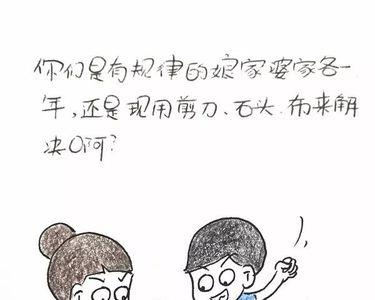 你们是有规律的娘家婆家各一
年,还是现用剪刀、石头.布来解
决啊?